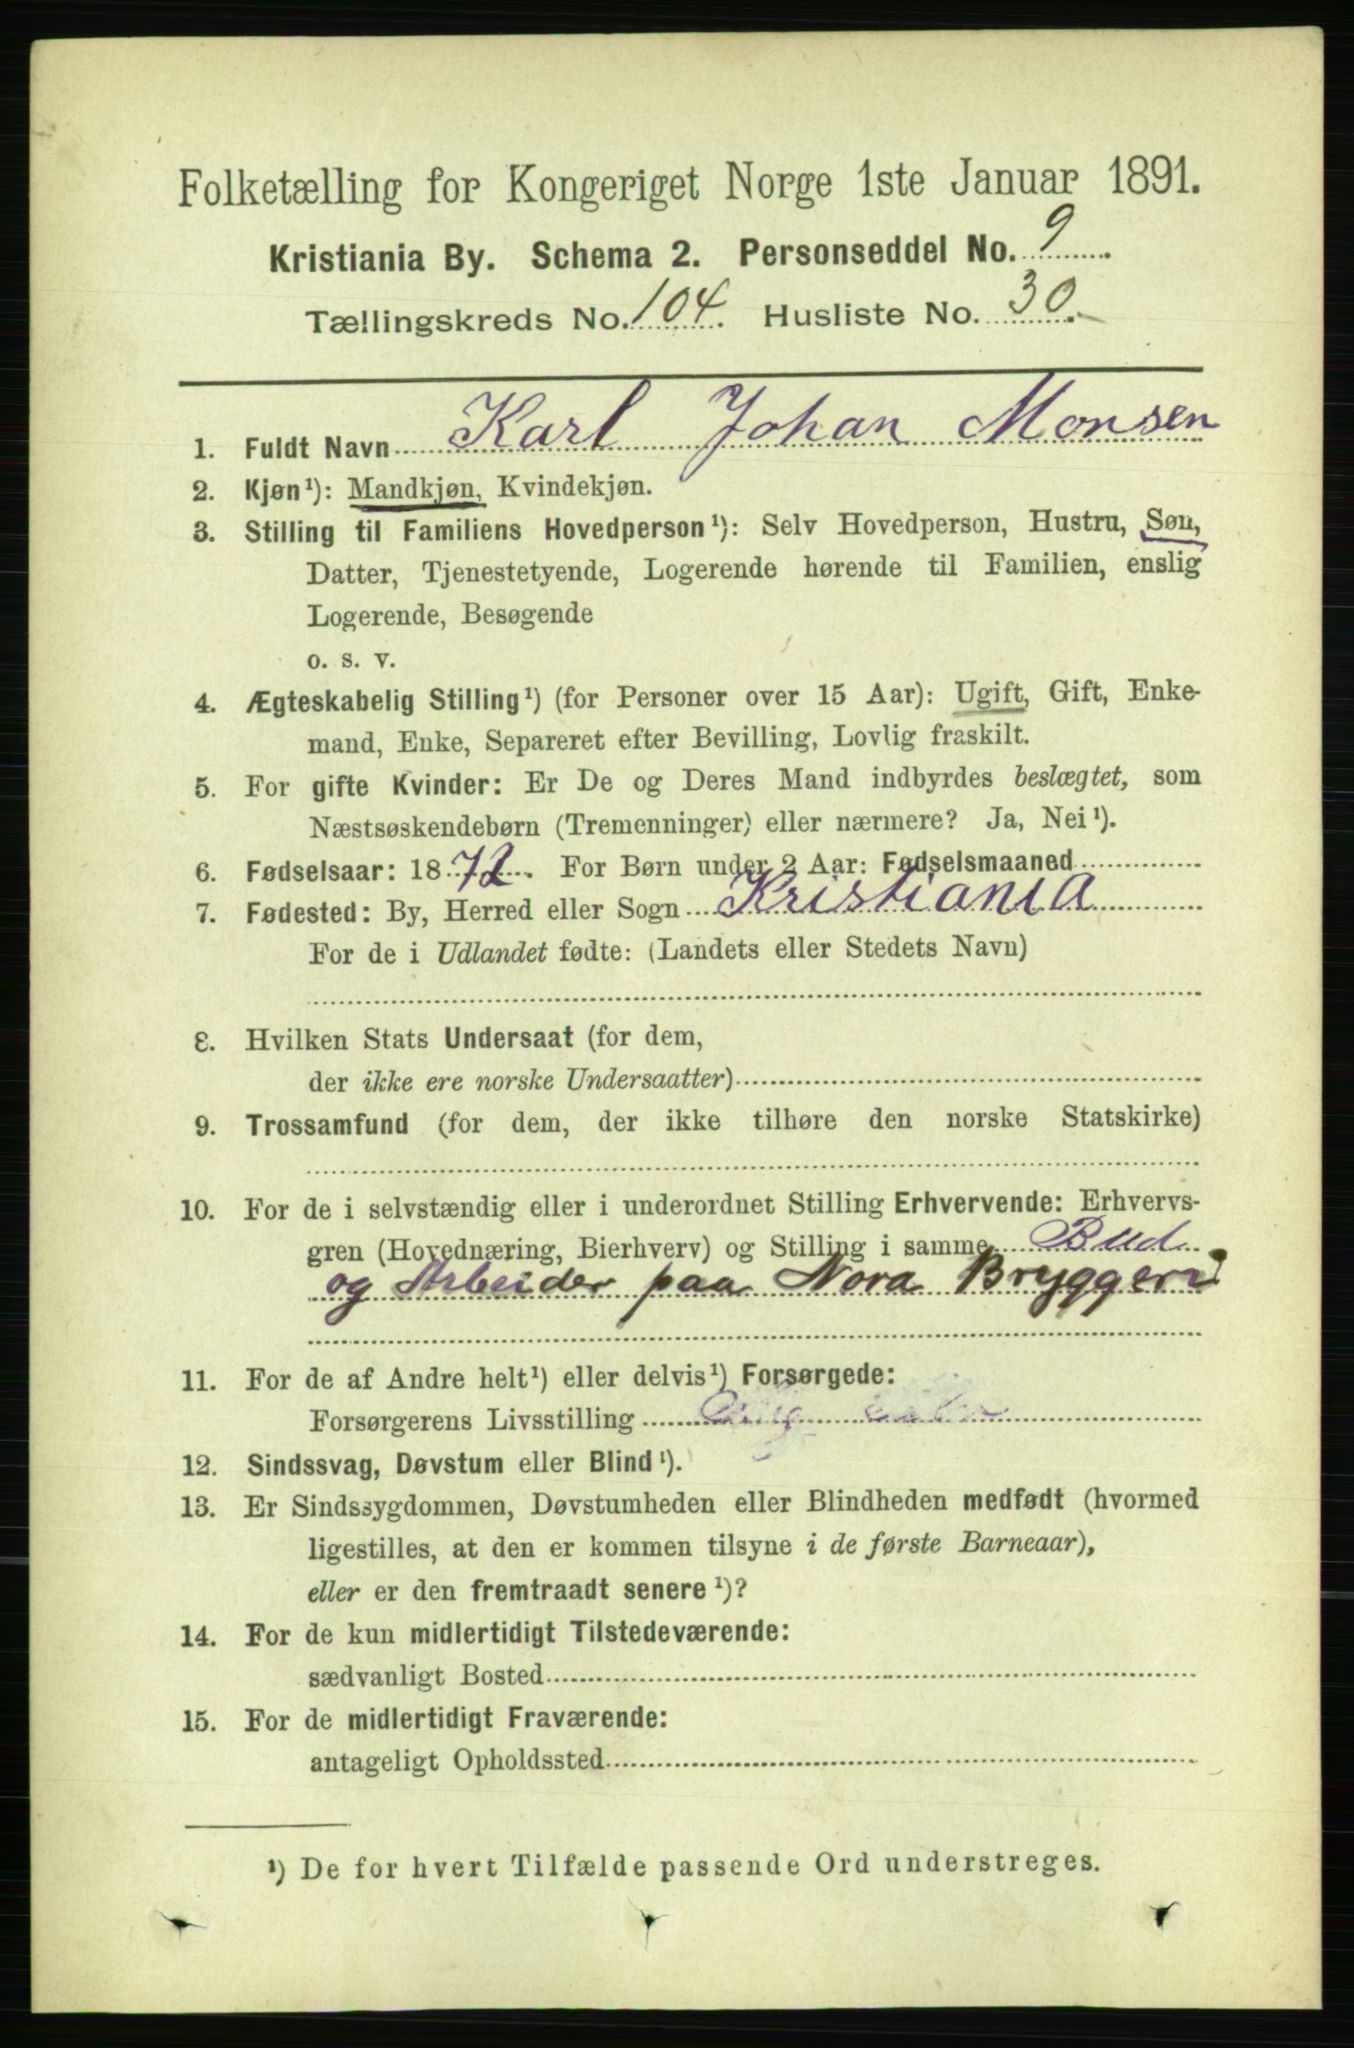 Folketælling for Kongeriget Norge 1ste Januar 1891.
Kristiania By. Schema 2. Personseddel No. 9
Tællingskreds No. 104. Husliste No. 30.
1. Fuldt Navn Karl Johan Monsen
2. Kjøn¹): Mandkjøn, Kvindekjøn.
3. Stilling til Familiens Hovedperson¹): Selv Hovedperson, Hustru, Søn,
Datter, Tjenestetyende, Logerende hørende til Familien, enslig
Logerende, Besøgende
o. s. v.
4. Ægteskabelig Stilling¹) (for Personer over 15 Aar): Ugift, Gift, Enke-
mand, Enke, Separeret efter Bevilling, Lovlig fraskilt.
5. For gifte Kvinder: Er De og Deres Mand indbyrdes beslægtet, som
Næstsøskendebørn (Tremenninger) eller nærmere? Ja, Nei¹).
6. Fødselsaar: 1872. For Børn under 2 Aar: Fødselsmaaned
7. Fødested: By, Herred eller Sogn Kristiania
For de i Udlandet fødte: (Landets eller Stedets Navn)
8. Hvilken Stats Undersaat (for dem,
der ikke ere norske Undersaatter)
9. Trossamfund (for dem, der ikke tilhøre den norske Statskirke)
10. For de i selvstændig eller i underordnet Stilling Erhvervende: Erhvervs-
gren (Hovednæring, Bierhverv) og Stilling i samme Bud
og Arbeider paa Nora Bryggeri
11. For de af Andre helt¹) eller delvis¹) Forsørgede:
Forsørgerens Livsstilling
12. Sindssvag, Døvstum eller Blind¹).
13. Er Sindssygdommen, Døvstumheden eller Blindheden medfødt (hvormed
ligestilles, at den er kommen tilsyne i de første Barneaar),
eller er den fremtraadt senere¹)?
14. For de kun midlertidigt Tilstedeværende:
sædvanligt Bosted
15. For de midlertidigt Fraværende:
antageligt Opholdssted
¹) De for hvert Tilfælde passende Ord understreges.